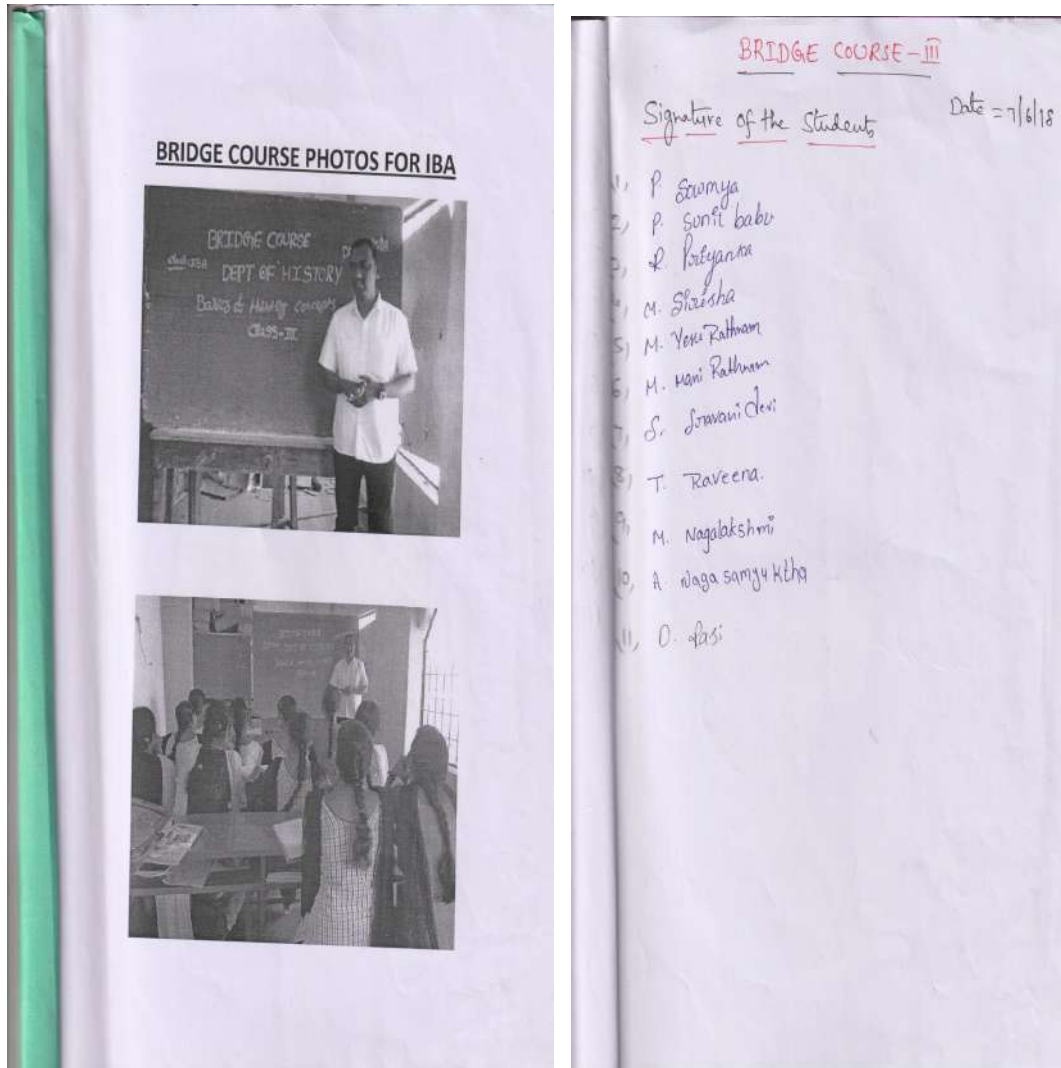 BRIDGE COURSE PHOTOS FOR IBA
BRIDGE COURSE
Class: IBA
DEPT OF HISTORY
Basics of History concepts
Class-III
BRIDGE COURSE-III
Signature of the Students
Date = 7/6/18
1, P. Sowmya
2, P. Sunil babu
3, R. Priyanka
4, M. Shirisha
5, M. Yesu Rathnam
6, M. Mani Rathnam
7, S. Sravani Devi
8, T. Raveena.
9, M. Nagalakshmi
10, A. Naga samyuktha
11, D.